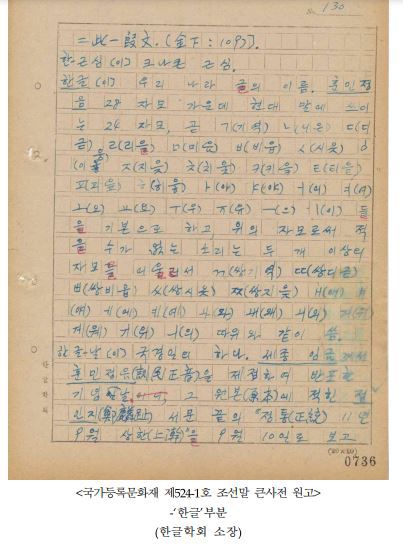 No. 130
=此一段文. (全下: 1093).
한근심(이) 크나큰 근심.
한글(이) 우리 나라 글의 이름. 훈민정
음 28 자모 가운데 현대 말에 쓰이
는 24 자모, 곧 ㄱ(기역) ㄴ(니은) ㄷ(디
귿) ㄹ(리을) ㅁ(미음) ㅂ(비읍) ㅅ(시옷) ㅇ
(이응) ㅈ(지읒) ㅊ(치읓) ㅋ(키읔) ㅌ(티읕)
ㅍ(피읖) ㅎ(히읗) ㅏ(아) ㅑ(야) ㅓ(어) ㅕ(여)
ㅗ(오) ㅛ(요) ㅜ(우) ㅠ(유) ㅡ(으) ㅣ(이) 들
을 기본으로 하고, 위의 자모로써 적
을 수가 없는 소리는 두 개 이상의
자모를 어울러서 ㄲ(쌍기역) ㄸ(쌍디귿)
ㅃ(쌍비읍) ㅆ(쌍시옷) ㅉ(쌍지읒) ㅐ(애)
(얘) ㅔ(에) ㅖ(예) ㅘ(와) ㅙ(왜) ㅚ(외)
ㅞ(웨) ㅟ(위) ㅢ(의) 따위와 같이 씀.
한글날(이) 국경일의 하나. 세종 임금께서
훈민정음(訓民正音)을 제정하여 반포한
기념날. 그 원본(原本)에 적힌 정
인지(鄭麟趾) 서문 끝의 "정통(正統) 11년
9월 상한(上澣)"을 9월 10일로 보고
한글학회
(20×20)
0736
<국가등록문화재 제524-1호 조선말 큰사전 원고>
-'한글'부분
(한글학회 소장)